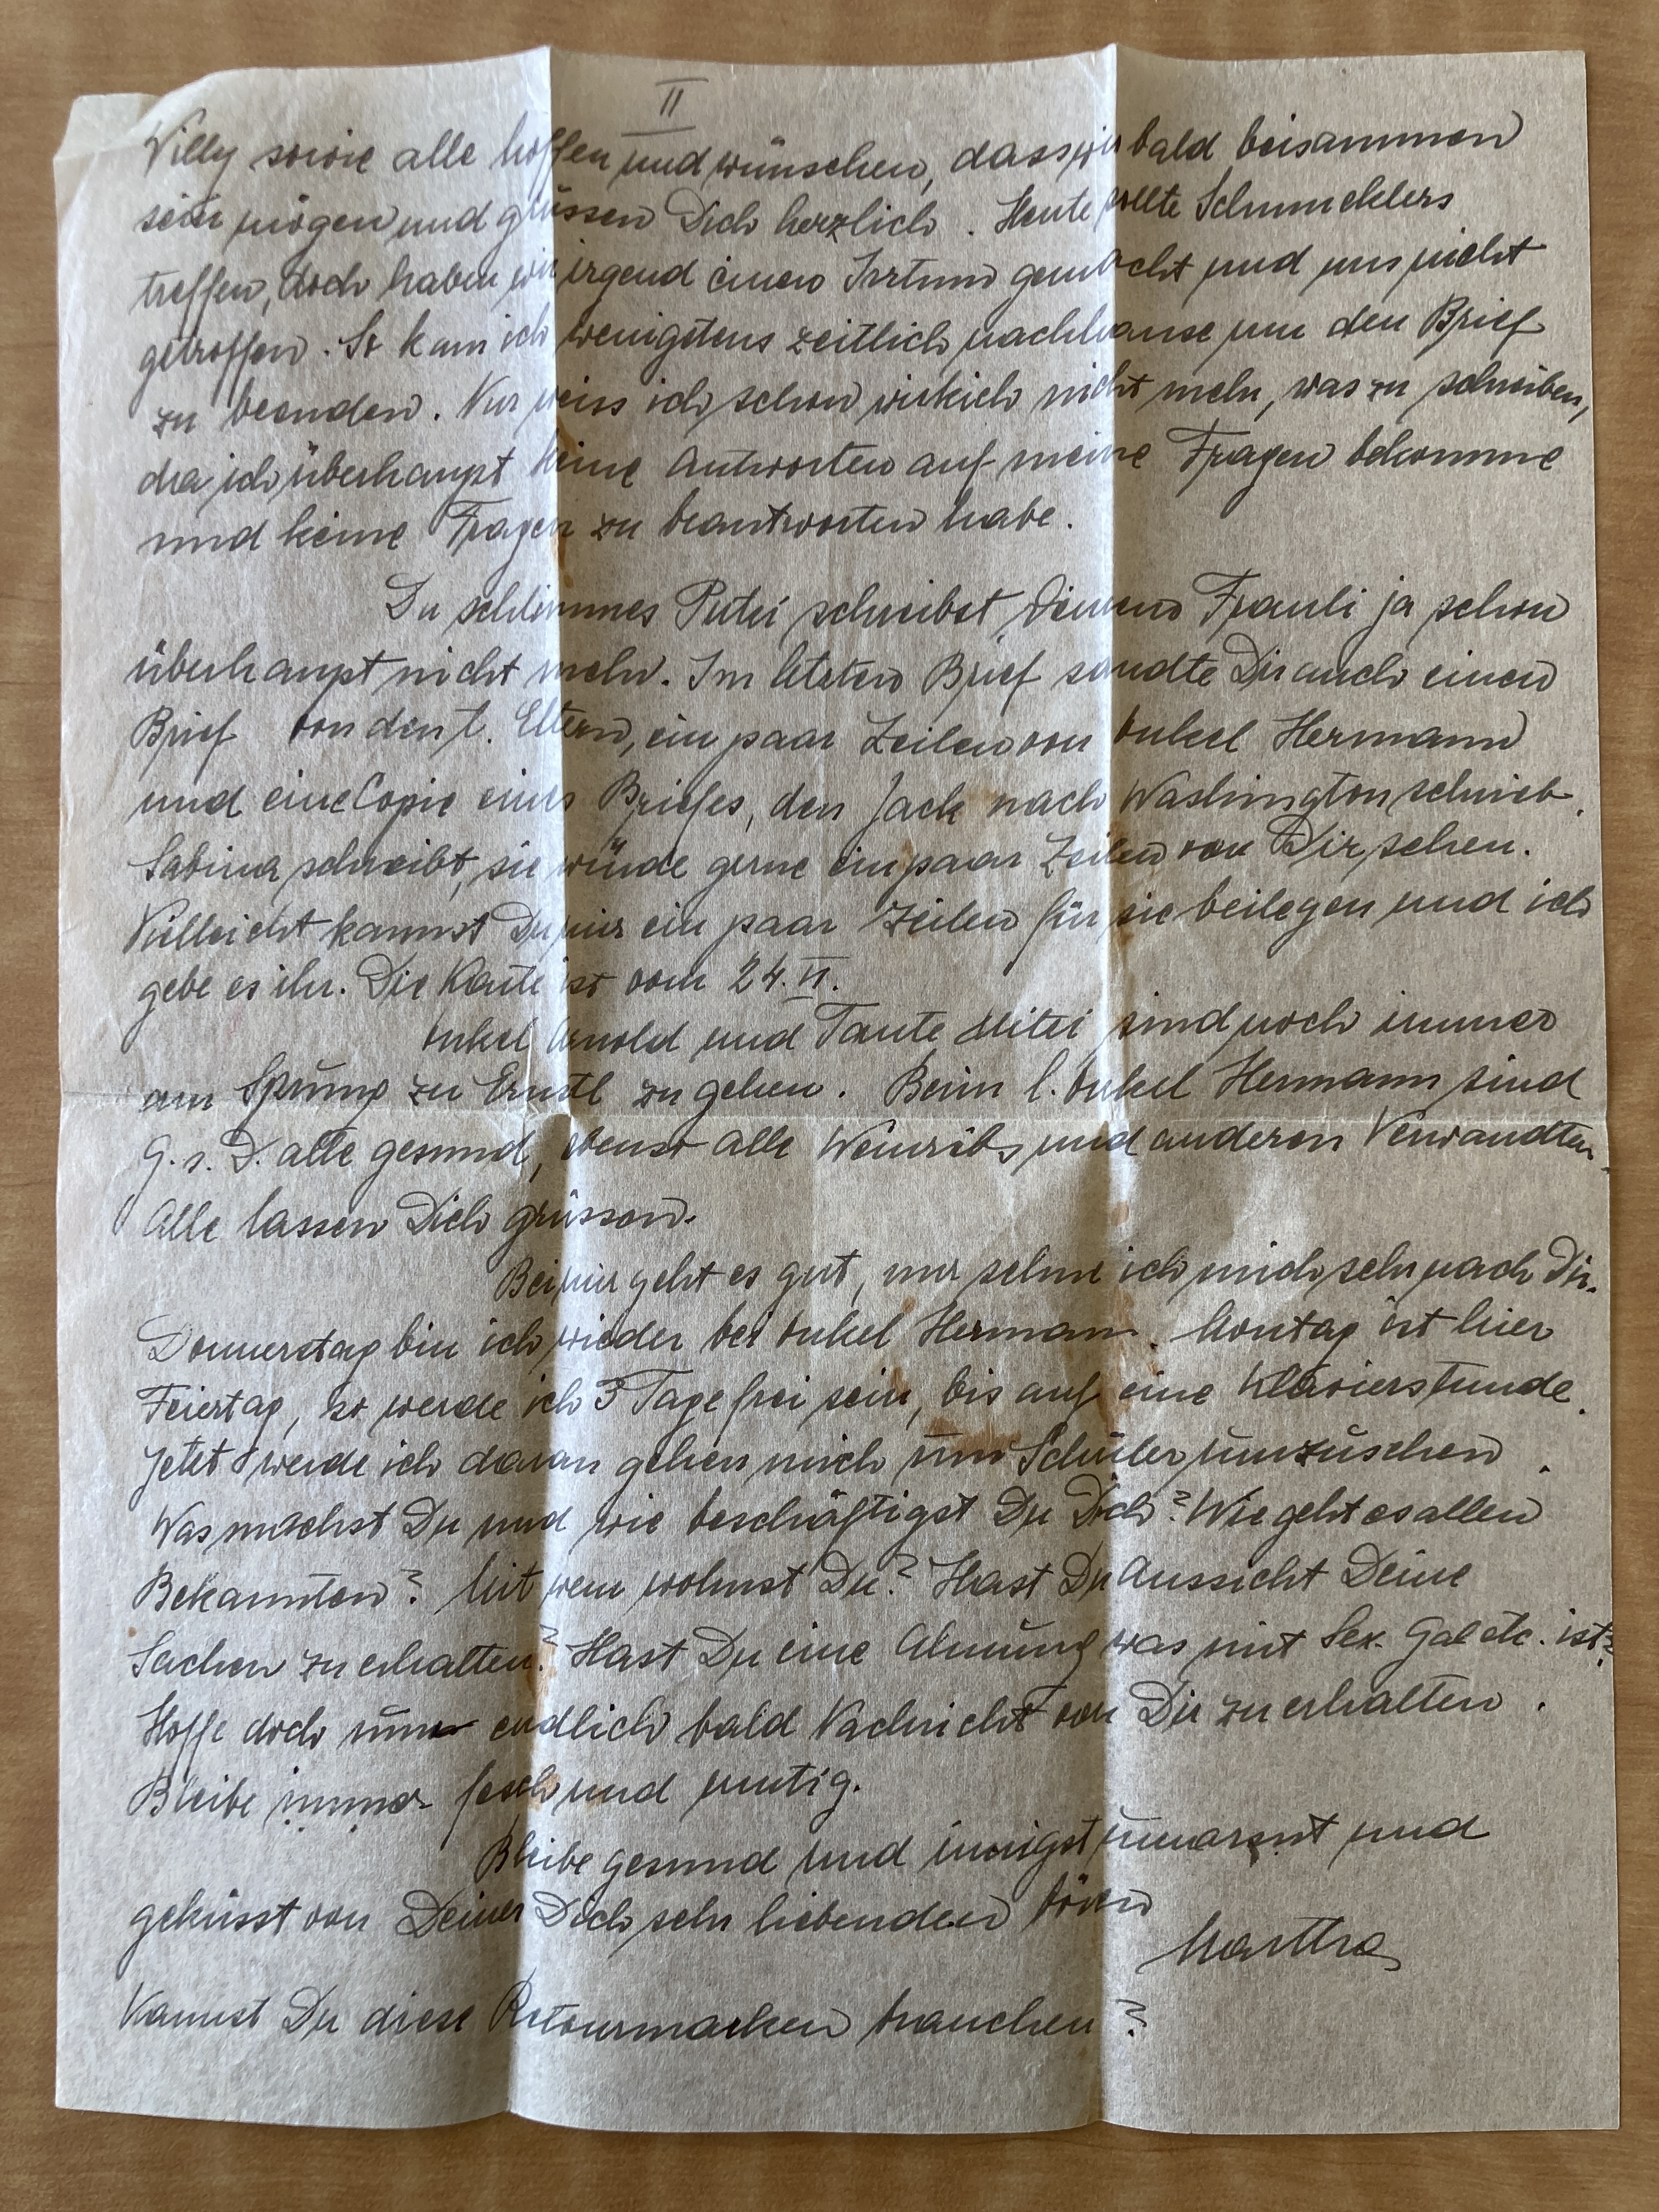 II
Willy sowie alle hoffen und wünschen, dass wir bald beisammen
sein mögen und grüssen Dich herzlich. Heute wollte Schmucklers
treffen, doch haben wir irgend einen Irrtum gemacht und uns nicht
getroffen. So kam ich wenigstens zeitlich nachhause um den Brief
zu beenden. Nur weiss ich schon wirklich nicht mehr, was zu schreiben,
da ich überhaupt keine Antworten auf meine Fragen bekomme
und keine Fragen zu beantworten habe.
Du schlimmes Putzi schreibst Deinem Frauli ja schon
überhaupt nicht mehr. Im letzten Brief sandte Dir auch einen
Brief von den l. Eltern, ein paar Zeilen von Onkel Hermann
und eine Copie eines Briefes, den Jack nach Washington schrieb.
Sabina schreibt, sie würde gerne ein paar Zeilen von Dir sehen.
Vielleicht kannst Du mir ein paar Zeilen für sie beilegen und ich
gebe es ihr. Die Karte ist vom 24. VI.
Onkel Arnold und Tante Mitzi sind noch immer
am Sprung zu Ernstl zu gehen. Beim l. Onkel Hermann sind
G. s. D. alle gesund, ebenso alle Weinrebs und anderen Verwandten.
Alle lassen Dich grüssen.
Bei mir geht es gut, nur sehne ich mich sehr nach Dir.
Donnerstag bin ich wieder bei Onkel Hermann. Montag ist hier
Feiertag, so werde ich 3 Tage frei sein, bis auf eine Klavierstunde.
Jetzt werde ich daran gehen mich um Schüler umzusehen.
Was machst Du und wie beschäftigst Du Dich? Wie geht es allen
Bekannten? Mit wem wohnst Du? Hast Du Aussicht Deine
Sachen zu erhalten? Hast Du eine Ahnung was mit Sex. Gal etc. ist?
Hoffe doch nun endlich bald Nachricht von Dir zu erhalten.
Bleibe immer fesch und mutig.
Bleibe gesund und innigst umarmt und
geküsst von Deiner Dich sehr liebenden bösen
Martha
Kannst Du diese Retourmarken brauchen?